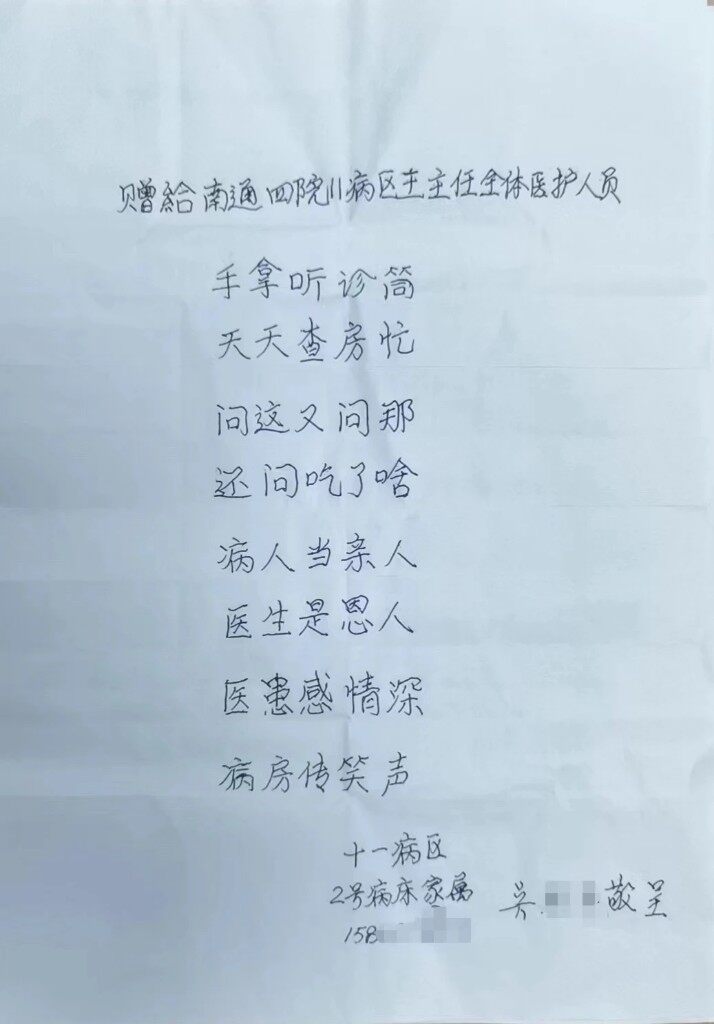 赠给南通四院11病区主任全体医护人员
手拿听诊筒
天天查房忙
问这又问那
还问吃了啥
病人当亲人
医生是恩人
医患感情深
病房传笑声
十一病区
2号病床家属
吴 敬呈
158